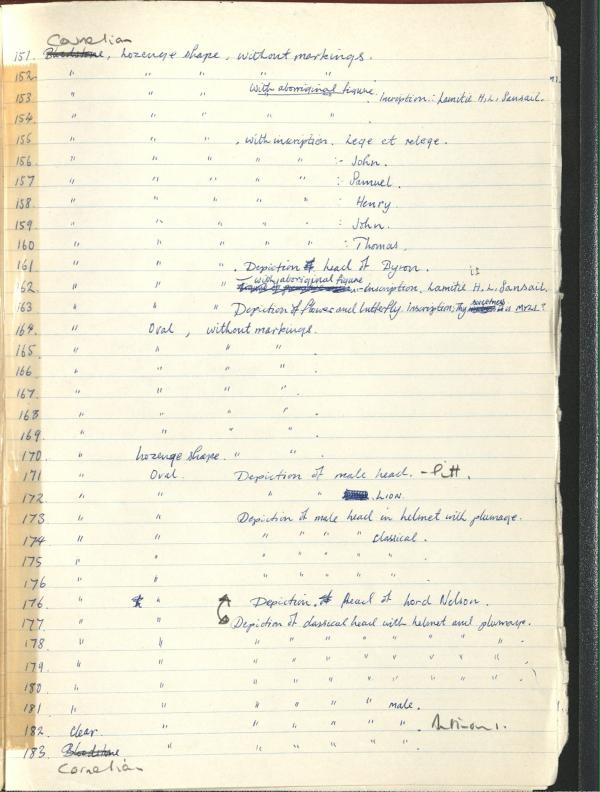 Cornelian
151. Bloodstone, Lozenge shape, without markings.
152. " " " " "
With aboriginal figure.
153 " " " Incription: Lamitié H.L. Sansail.
154. " " " " " .
155 " " " , with inscription. Lege et relege.
156 " " " " " :- John.
157 " " " " " :- Samuel.
158 " " " " " : Henry.
159 " " " " " : John.
160 " " " " " : Thomas.
161 " " " . Depiction of head of Byron.
with aboriginal figure is
162 " " " Inscription, Lamitié H.L. Sansail.
sweetness
163 " " " Depiction of flower and butterfly. Inscription; Thy is a MYRL?
164. " Oval, without markings.
165. " " " " .
166 " " " " .
167. " " " " .
168 " " " " .
169. " " " " .
170 " Lozenge shape. " "
171 " Oval. Depiction of male head. - Pitt.
172 " " " " LION.
173 " " Depiction of male head in helmet with plumage.
174 " " " " " " classical.
175 " " " " " " " .
176 " " " " " " " .
176. " " Depiction of head of Lord Nelson.
177. " " Depiction of classical head with helmet and plumage.
178 " " " " " " " " "
179. " " " " " " " " "
180. " " " " " " " " "
181. " " " " " " male.
182. clear. " " " " " " .
183. Bloodstone " " " " " " .
Cornelian